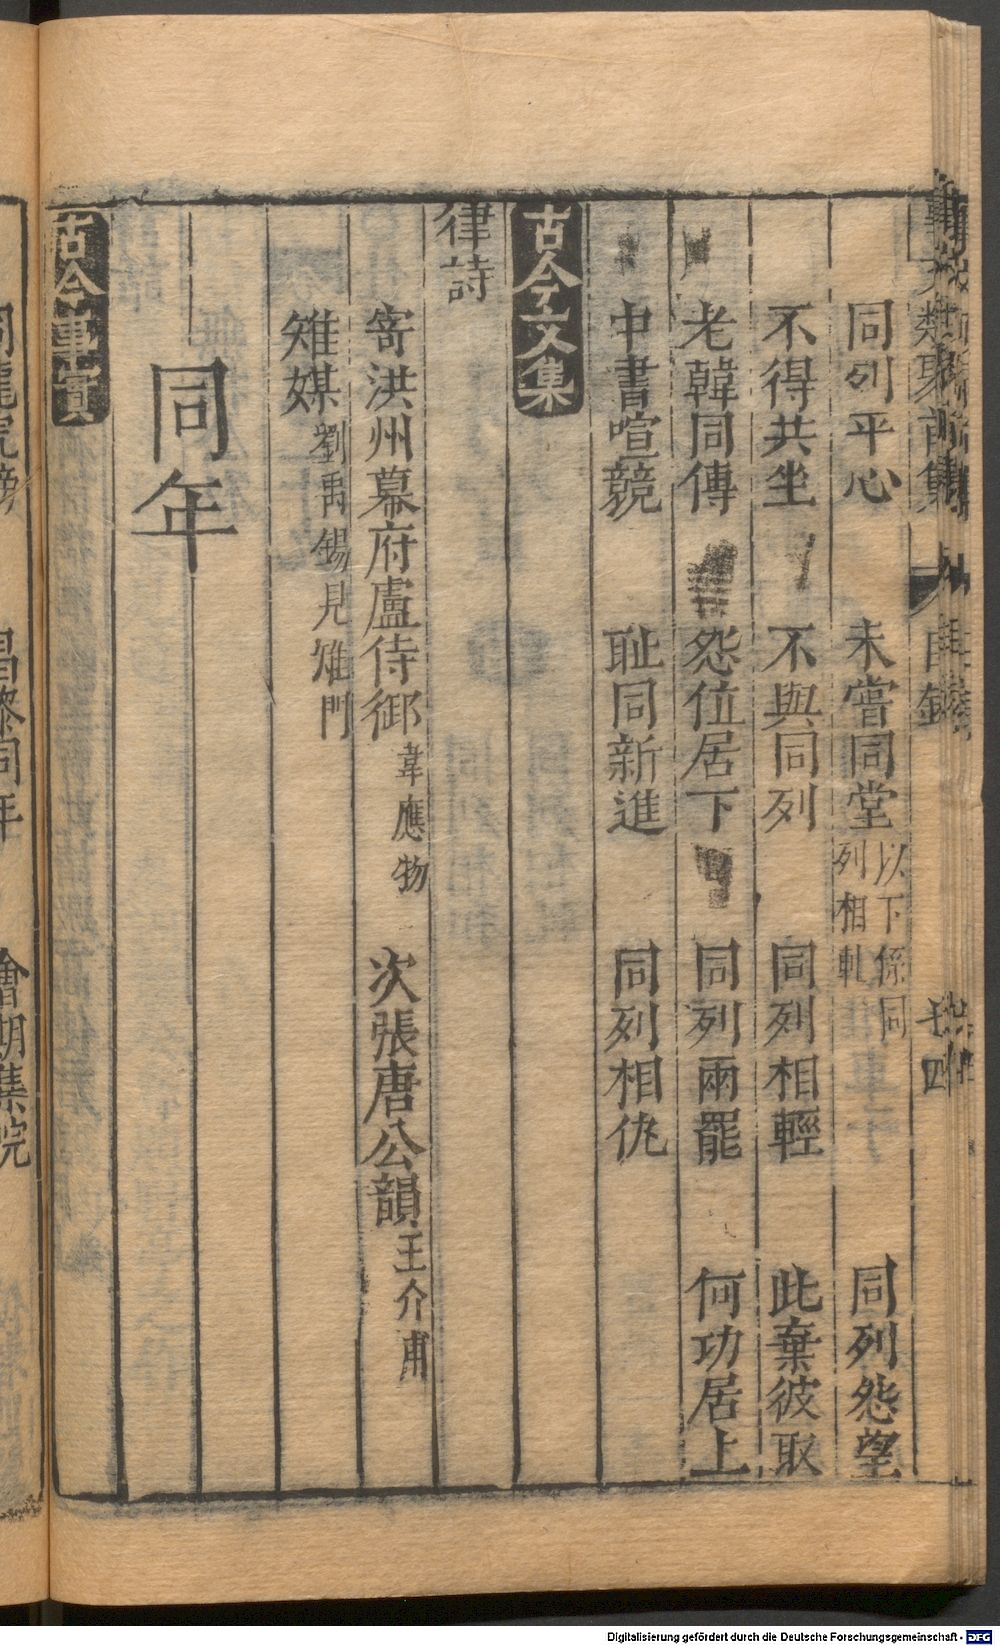 同列平心　未嘗同堂以下係同列相軋　同列怨望
不得共坐　不與同列　同列相輕　此棄彼取
老韓同傳　怨位居下　同列兩罷　何功居上
中書喧競　耻同新進　同列相仇
古今文集
律詩
寄洪州幕府盧侍御韋應物　次張唐公韻王介甫
雉媒劉禹錫見雉門
同年
古今事實
昌黎同年
期集院
Digitalisierung gefördert durch die Deutsche Forschungsgemeinschaft - DFG